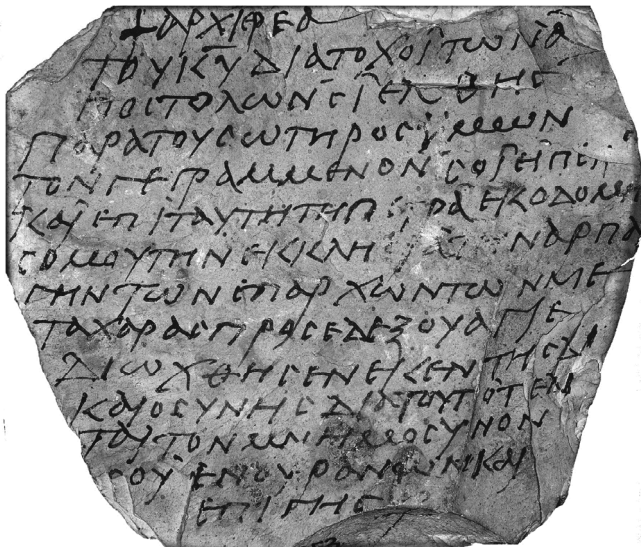 ϯαρχιερεα
του ιυ χυ διατοχοι των α
ποστολων
παρα του σωτηρος υμμων
τον γεγραμμενον σοι
και επι ταυτη τη πετρα εικοδομη
σο μου την εκκλη αρπα
γην των επαρχωντων με
τα χαρας προσεδεξου
διωχθης ενεικεν της δι
καιοσυνης δια τουτο
ται τον μνημοσυνον
σου εν ουρανω και
επι γης